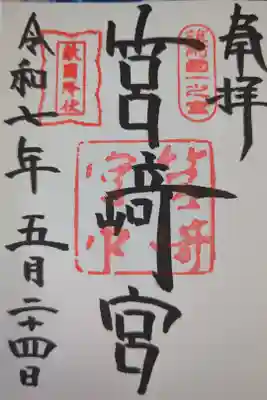 奉拝
筑前國一之宮
筥崎宮
敵國降伏
令和七年 五月二十四日